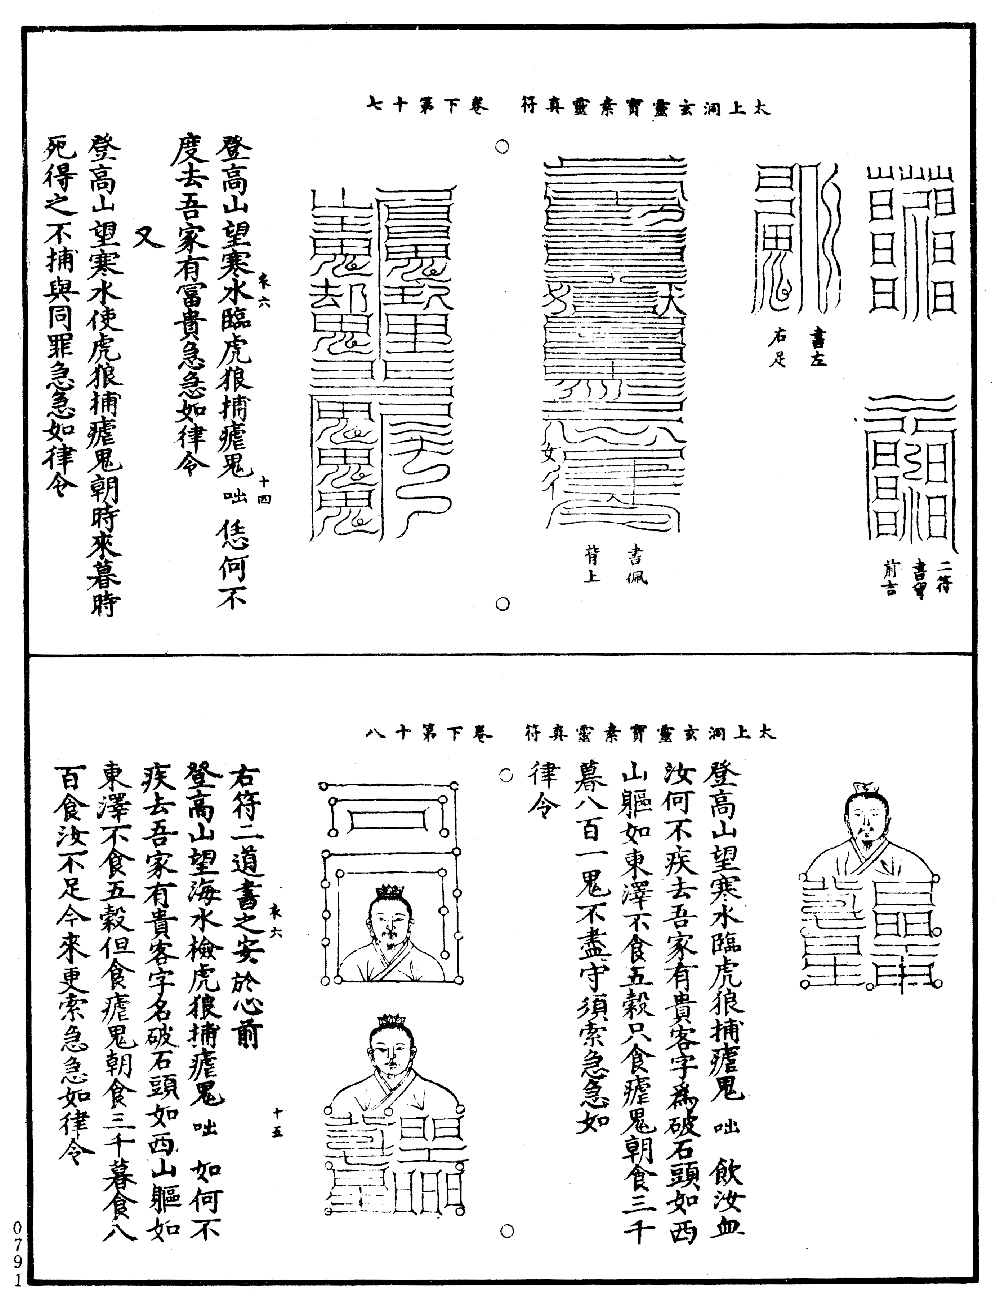 太上洞玄靈寶素靈真符　卷下第十七
二符
書臂
前吉
書左
右足
書佩
背上
登高山望寒水臨虎狼捕瘧鬼　咄　恁何不
度去吾家有富貴急急如律令
衾六　十四
又
登高山望寒水使虎狼捕瘧鬼朝時來暮時
死得之不捕與同罪急急如律令
太上洞玄靈寶素靈真符　卷下第十八
登高山望寒水臨虎狼捕瘧鬼　咄　飲汝血
汝何不疾去吾家有貴客字為破石頭如西
山軀如東澤不食五穀只食瘧鬼朝食三千
暮八百一鬼不盡守須索急急如
律令
右符二道書之安於心前
衾六　十五
登高山望海水檢虎狼捕瘧鬼　咄　如何不
疾去吾家有貴客字名破石頭如西山軀如
東澤不食五穀但食瘧鬼朝食三千暮食八
百食汝不足今來更索急急如律令
0791